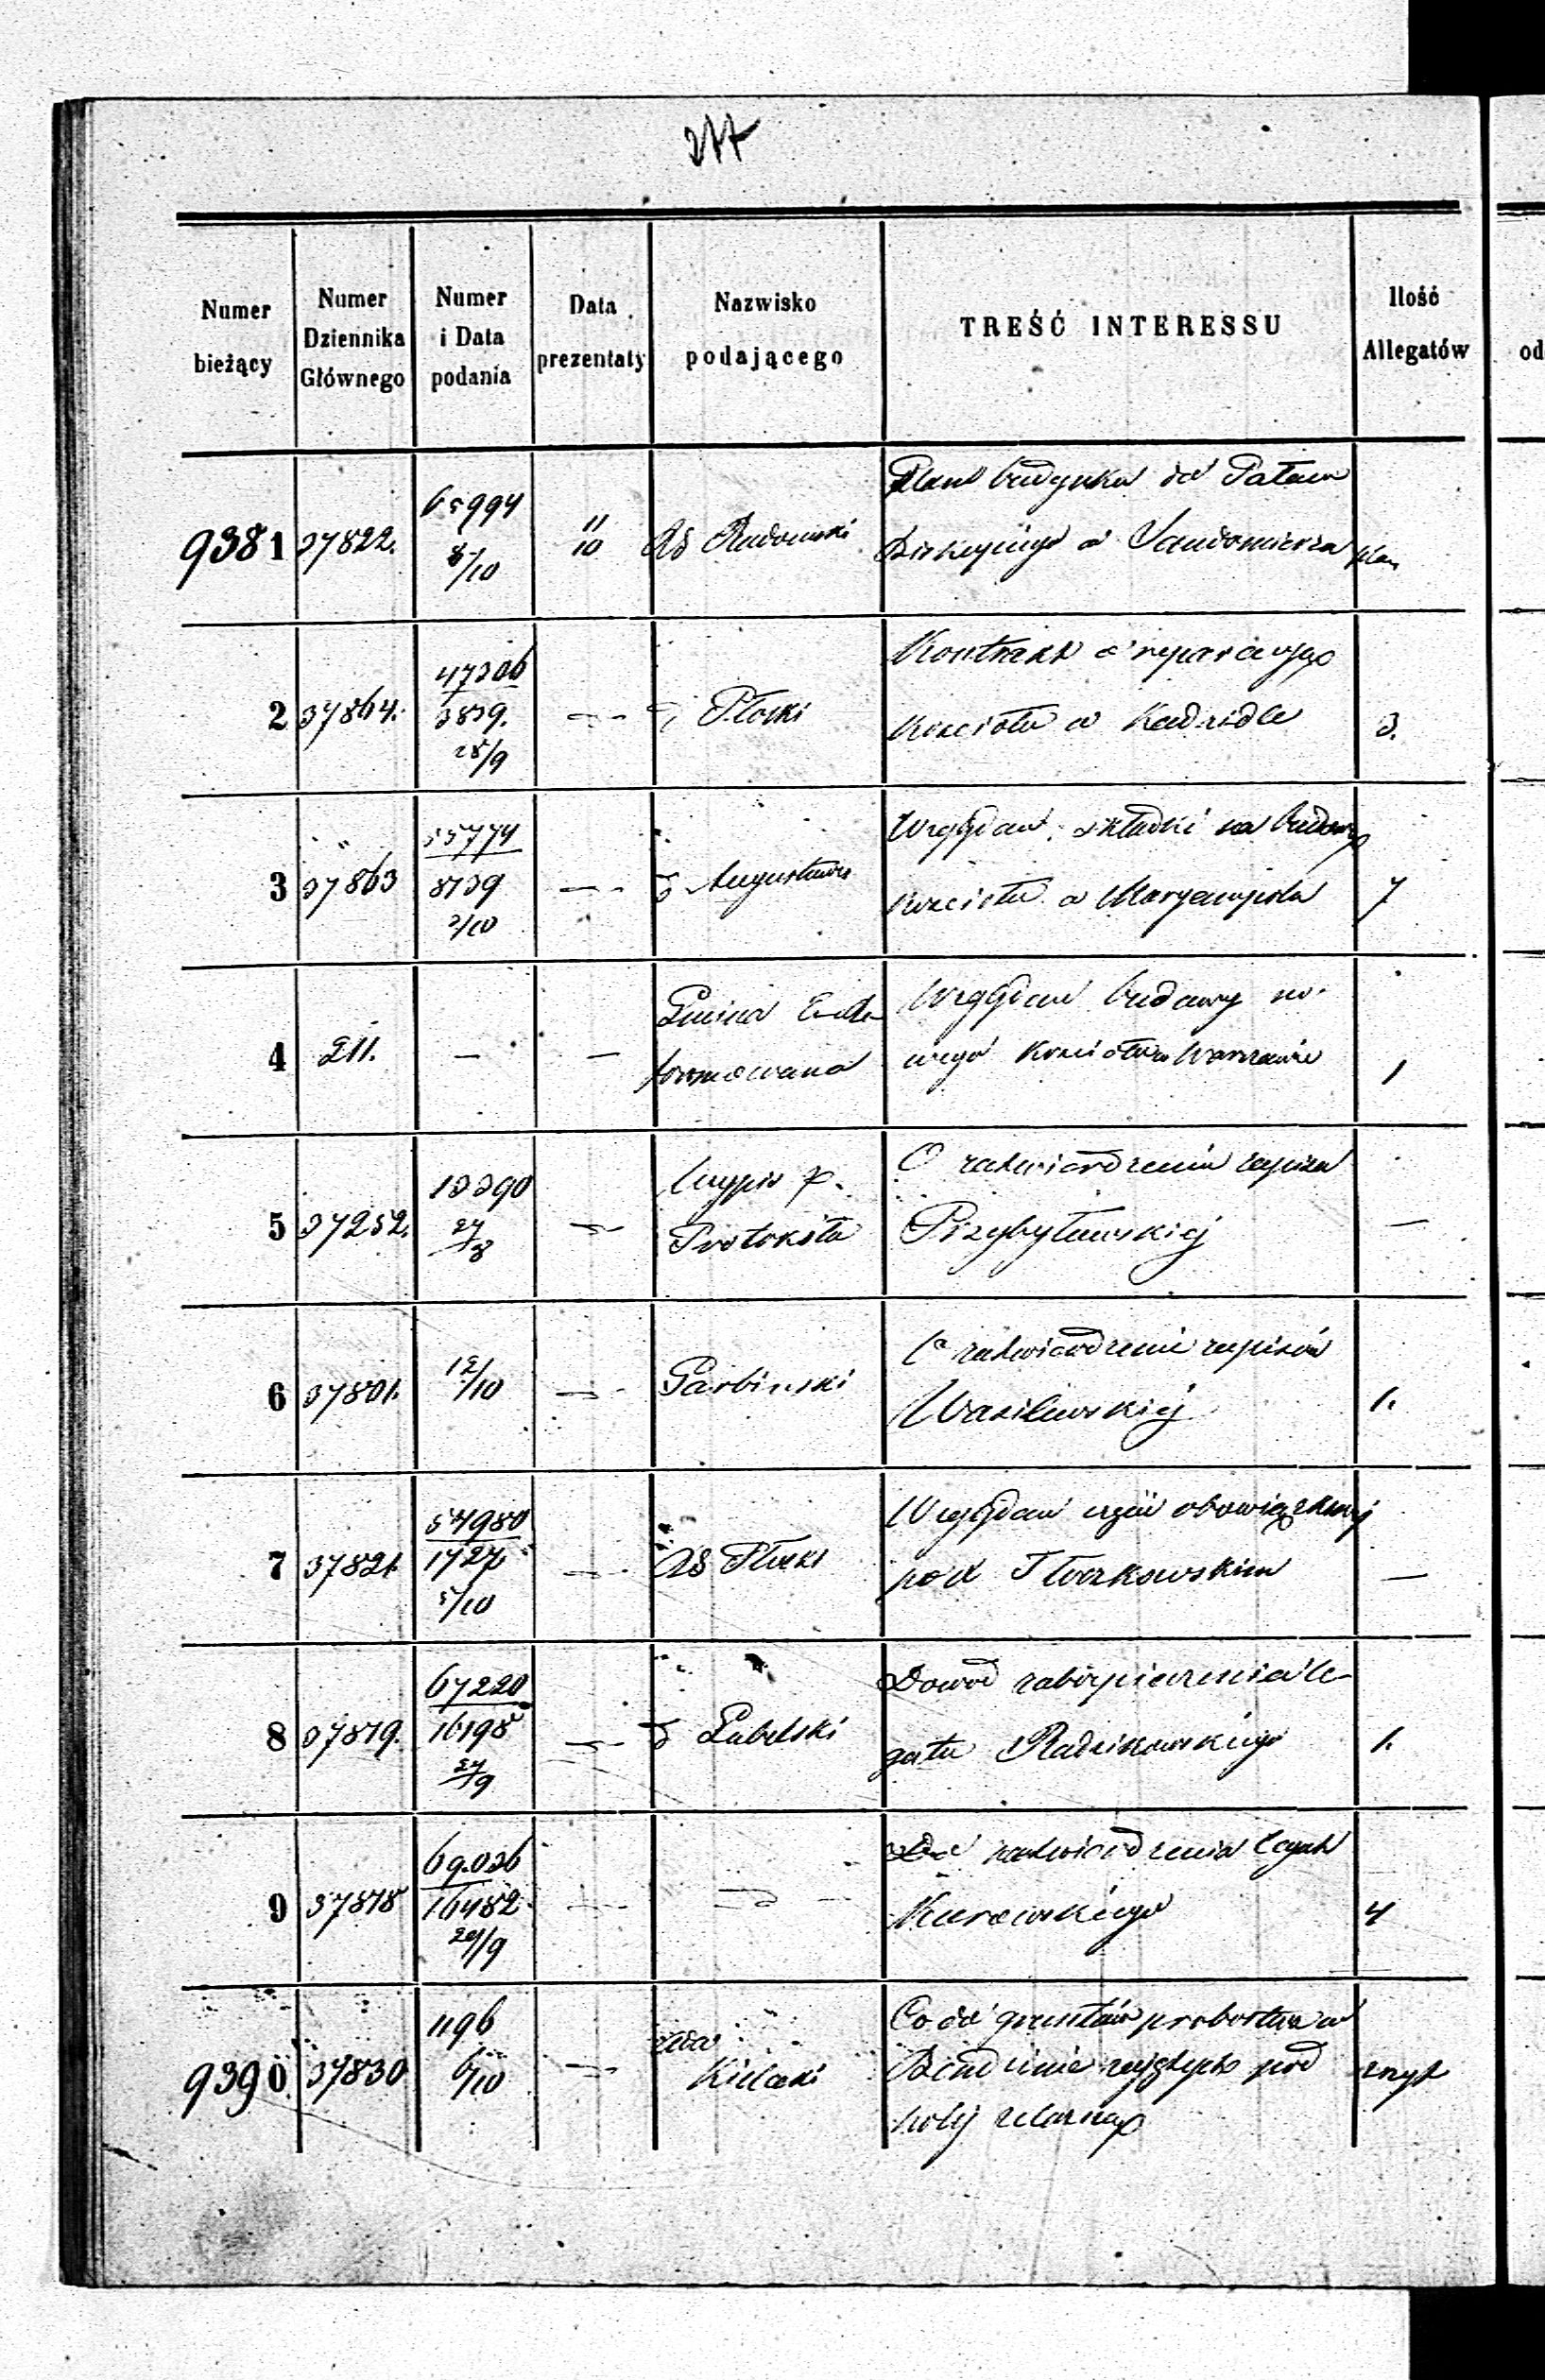 277
Numer bieżący
Numer Dziennika Głównego
Numer i Data podania
Data prezentaty
Nazwisko podającego
TREŚĆ INTERESSU
Ilość Allegatów
od
9381 37822. 65994 8/10 11/10 Radomski
Plan budynku do Pałacu
Biskupiego w Sandomierzu plan
2 37864. 47306 3839. 28/9 — Płocki
Kontrakt o reparacyą
Kościoła w Kadzidle 3.
3 37863 55774 8739 2/10 — Augustows
Względem składki na budowę
Kościoła w Maryampolu 7
4 211. — —
Gmina
formowana
Względem budowy no-
wego Kościoła w Warszawie 1
5 37252. 13390 27/8 —
Wypis z
Protokółu
O zatwierdzenie zapisu
Przybyławskiej —
6 37801. 12/10 — Garbinski
O zatwierdzenie zapisów
Wasilewskiej 1.
7 37821. 54980 1727 5/10 — Płocki
Względem obowiązkowej
pod Tłoczkowskim —
8 37819. 67220 16198 27/9 — Lubelski
Dowod zabezpieczenia le-
gatu Radzikowskiego 1.
9 37818 69.036 16482 29/9 — —
zatwierdzenia
Kurowskiego 4
9390 37830 1196 6/10 —
Kielecki
Co do gruntów probostwa w
Będzinie zajętych pod
kolej żelazną